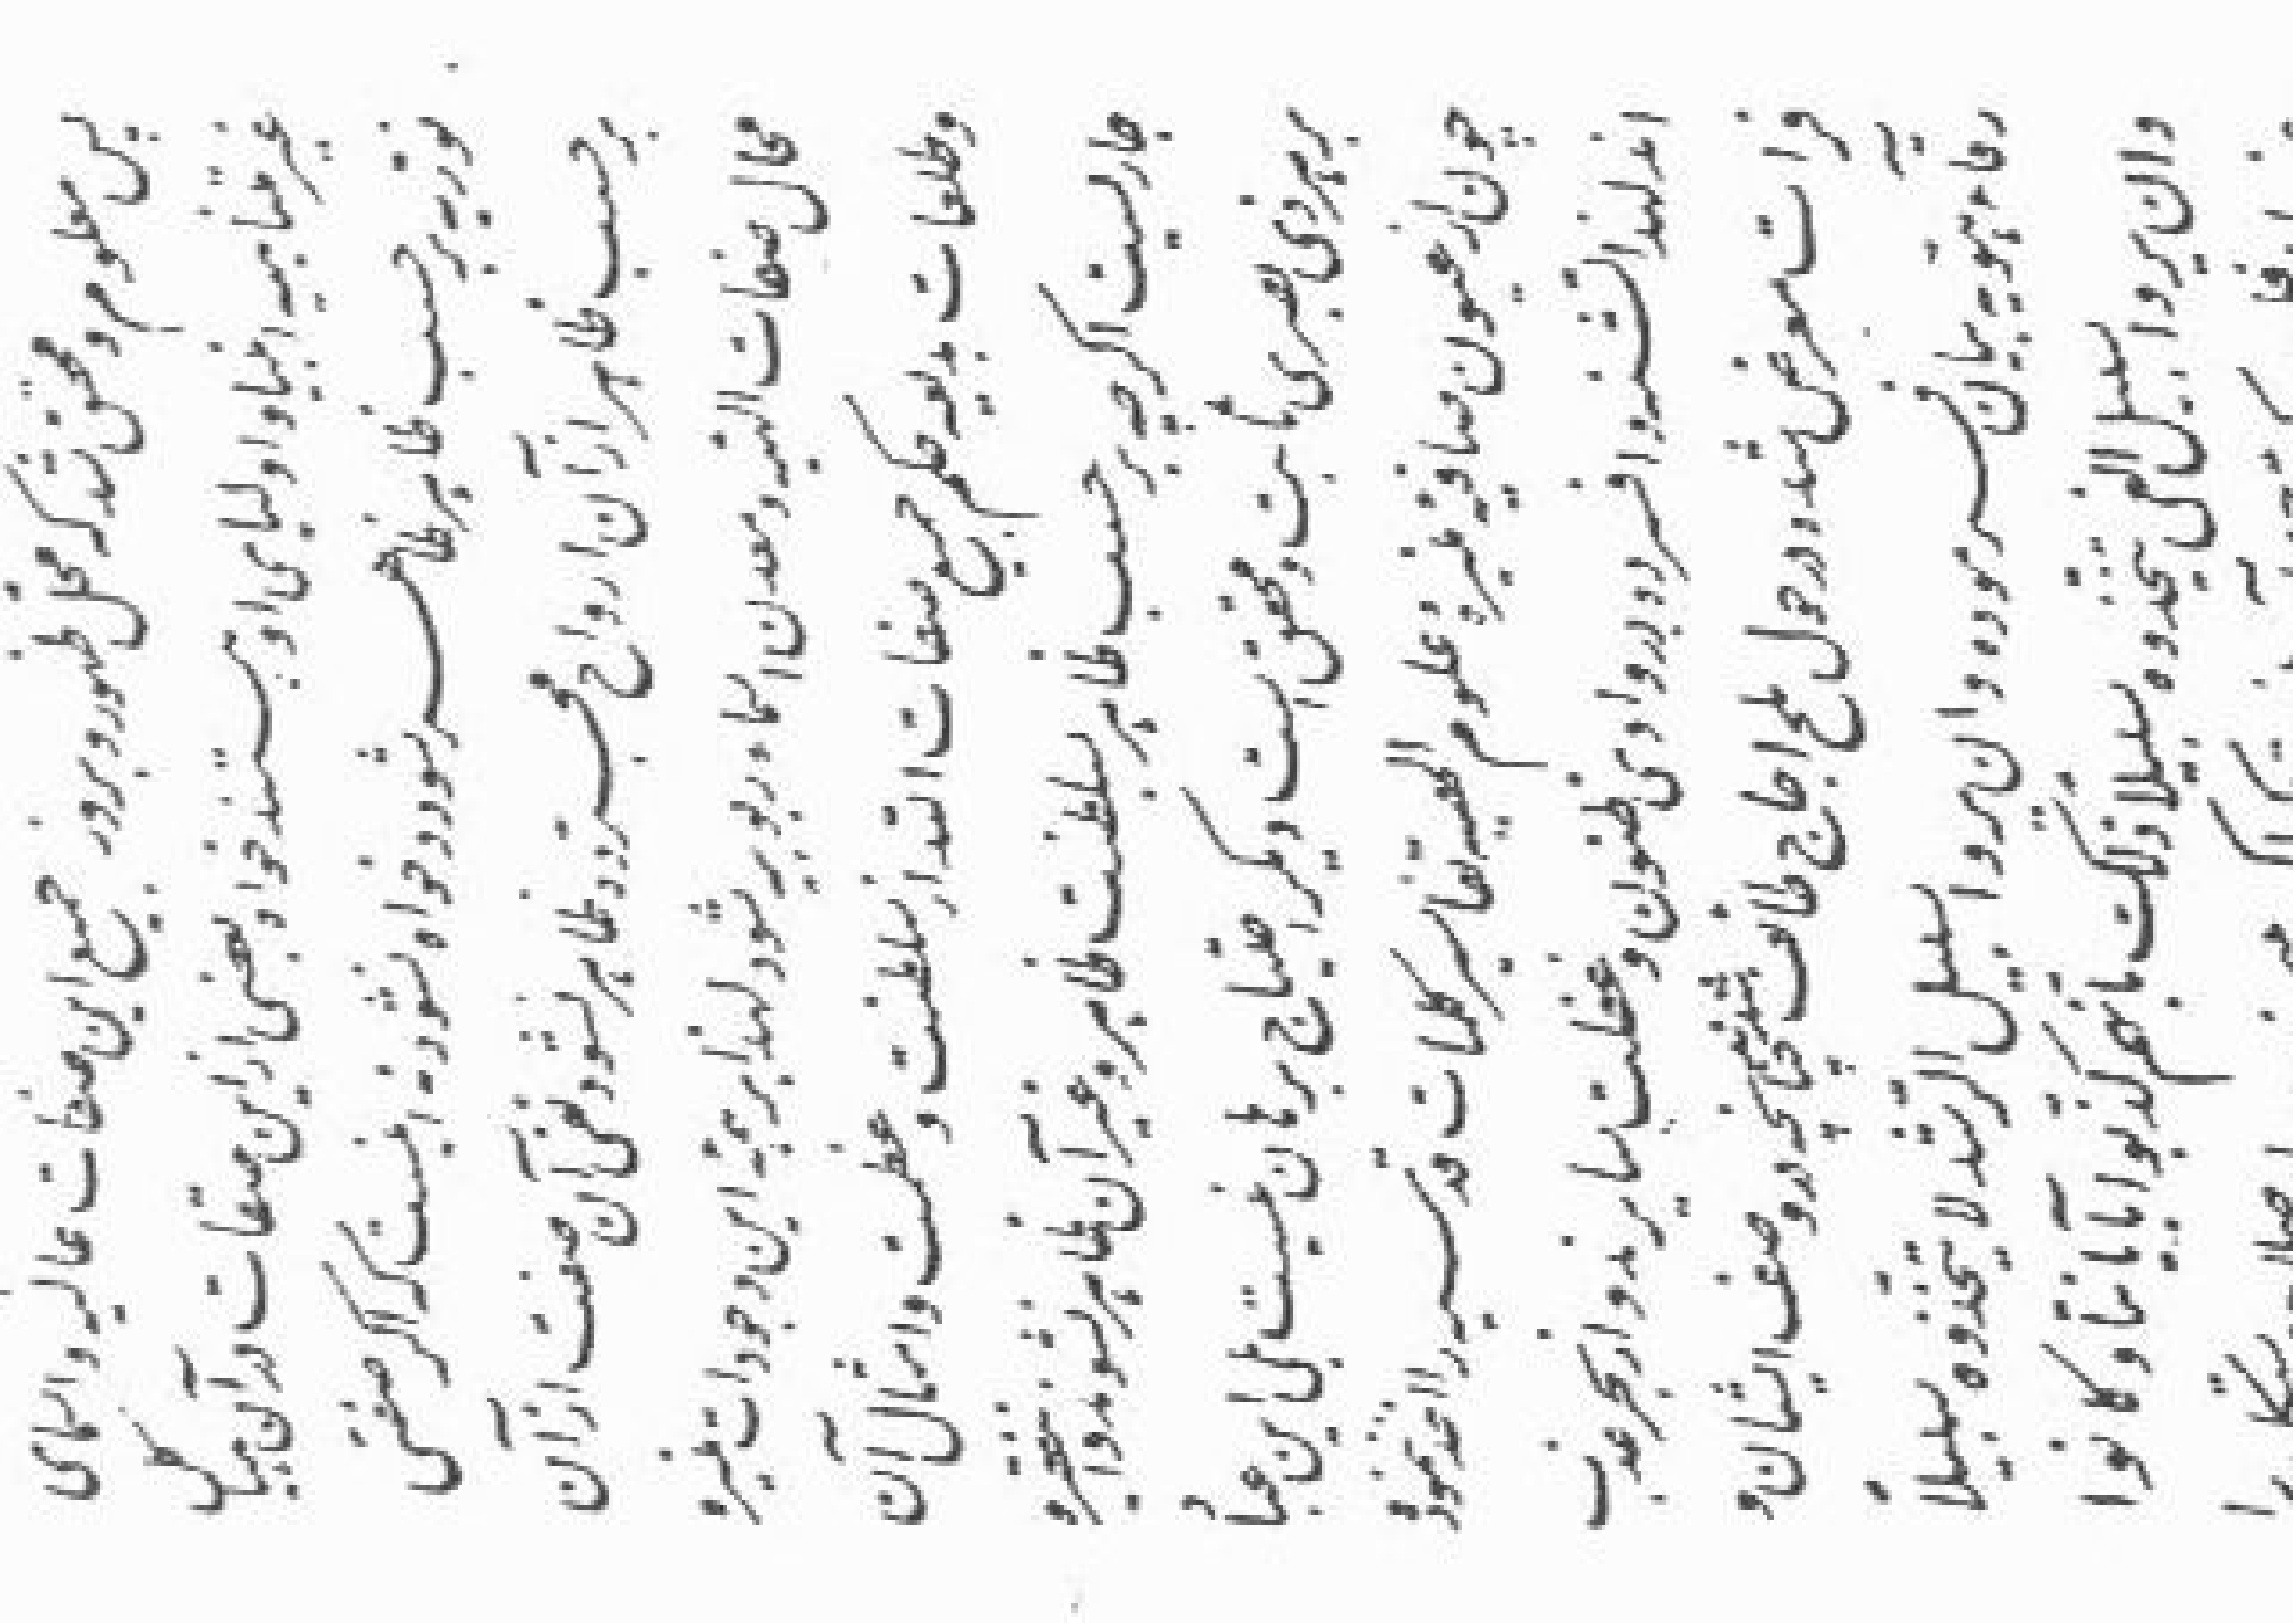 پس معلوم و محقق شد که محل ظهور و بروز جمیع این صفات عالیه و اسمای
غیر متناهیه انبیا و اولیای او هستند خواه بعضی از این صفات در آن هیاکل
نوریه بر حسب ظاهر ظاهر شود و خواه نشود نه اینست که اگر صفتی
بر حسب ظاهر از آن ارواح مجرده ظاهر نشود نفی آن صفت از آن
محال صفات الهیه و معدن اسماء ربوبیه شود لهذا بر همه این وجودات منیره
و طلعات بدیعه حکم جمیع صفات الله از سلطنت و عظمت و امثال آن
جاریست اگرچه بر حسب ظاهر بسلطنت ظاهره و غیر آن ظاهر نشوند و این فقره
بر هر ذی بصری ثابت و محقق است دیگر احتیاج برهان نیست بلی این عباد
چون از عیون صافیه منیره علوم الهیه تفاسیر کلمات قدسیه را اخذ ننموده
اند لهذا تشنه و افسرده در وادی ظنون و غفلت سایرند و از بحر عذب
فرات معرض شده در حول ملح اجاج طائف شده‌اند چنانچه در وصف ایشان و
رقاء هویه بیان فرموده و ان یروا سبیل الرشد لا یتخذوه سبیلاً
و ان یروا سبیل الغی یتخذوه سبیلا ذلک بانهم کذبوا بآیاتنا و کانوا